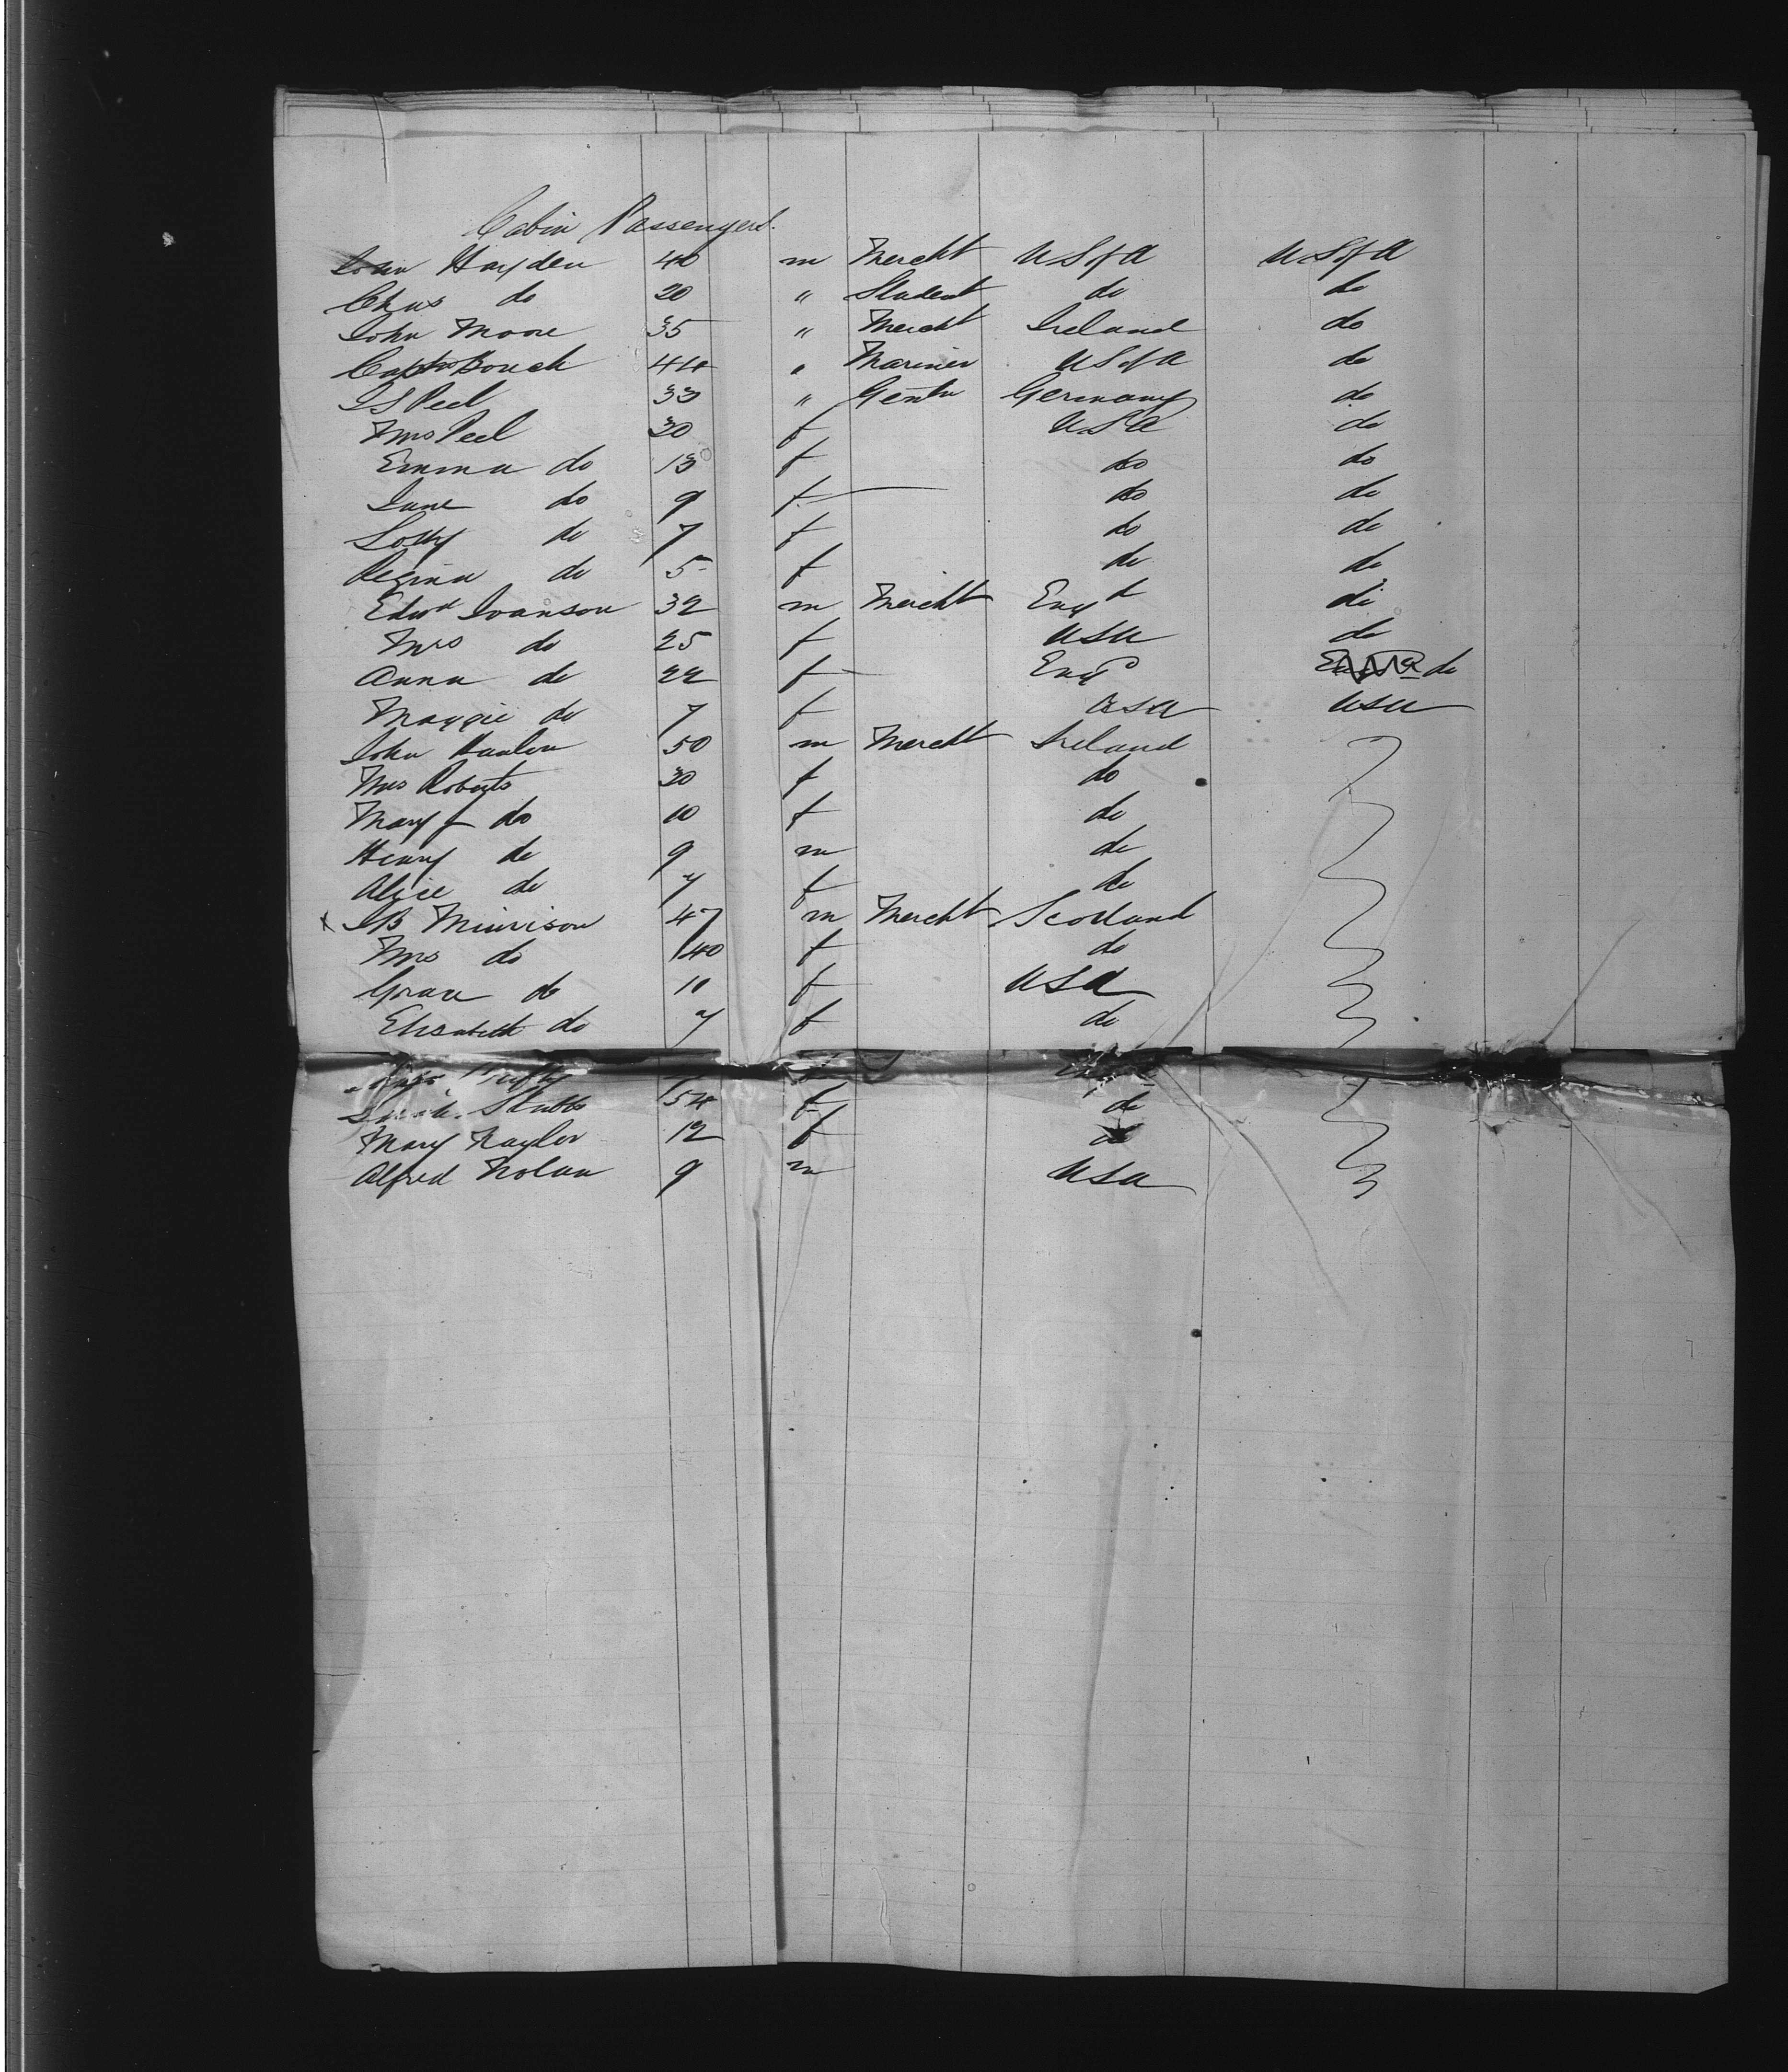 Cabin Passengers.
John Hayden 40 m Mercht U S of A U S of A
Chas do 20 " Student do do
John Moore 35 " Mercht Ireland do
Captn Bouch 44 " Mariner U S of A do
I S Peel 33 " Gentn Germany do
Mrs Peel 30 f U.S.A do
Emma do 13 f do do
Jane do 9 f do do
Lotty do 7 f do do
Regina do 5 f do do
Edwd Ivanson 32 m Mercht Engd do
Mrs do 25 f USA do
Anna do 22 f Engd do
Maggie do 7 f USA USA
John Hanlon 50 m Mercht Ireland
Mrs Roberts 30 f do
Mary J do 10 f do
Henry do 9 m do
Alice do 7 f do
x I B Minrison 47 m Mercht Scotland
Mrs do 40 f do
Grace do 11 f USA
Elisabeth do 7 f do
Stubbs 54 f do
Mary Naylor 12 f do
Alfred Nolan 9 m USA